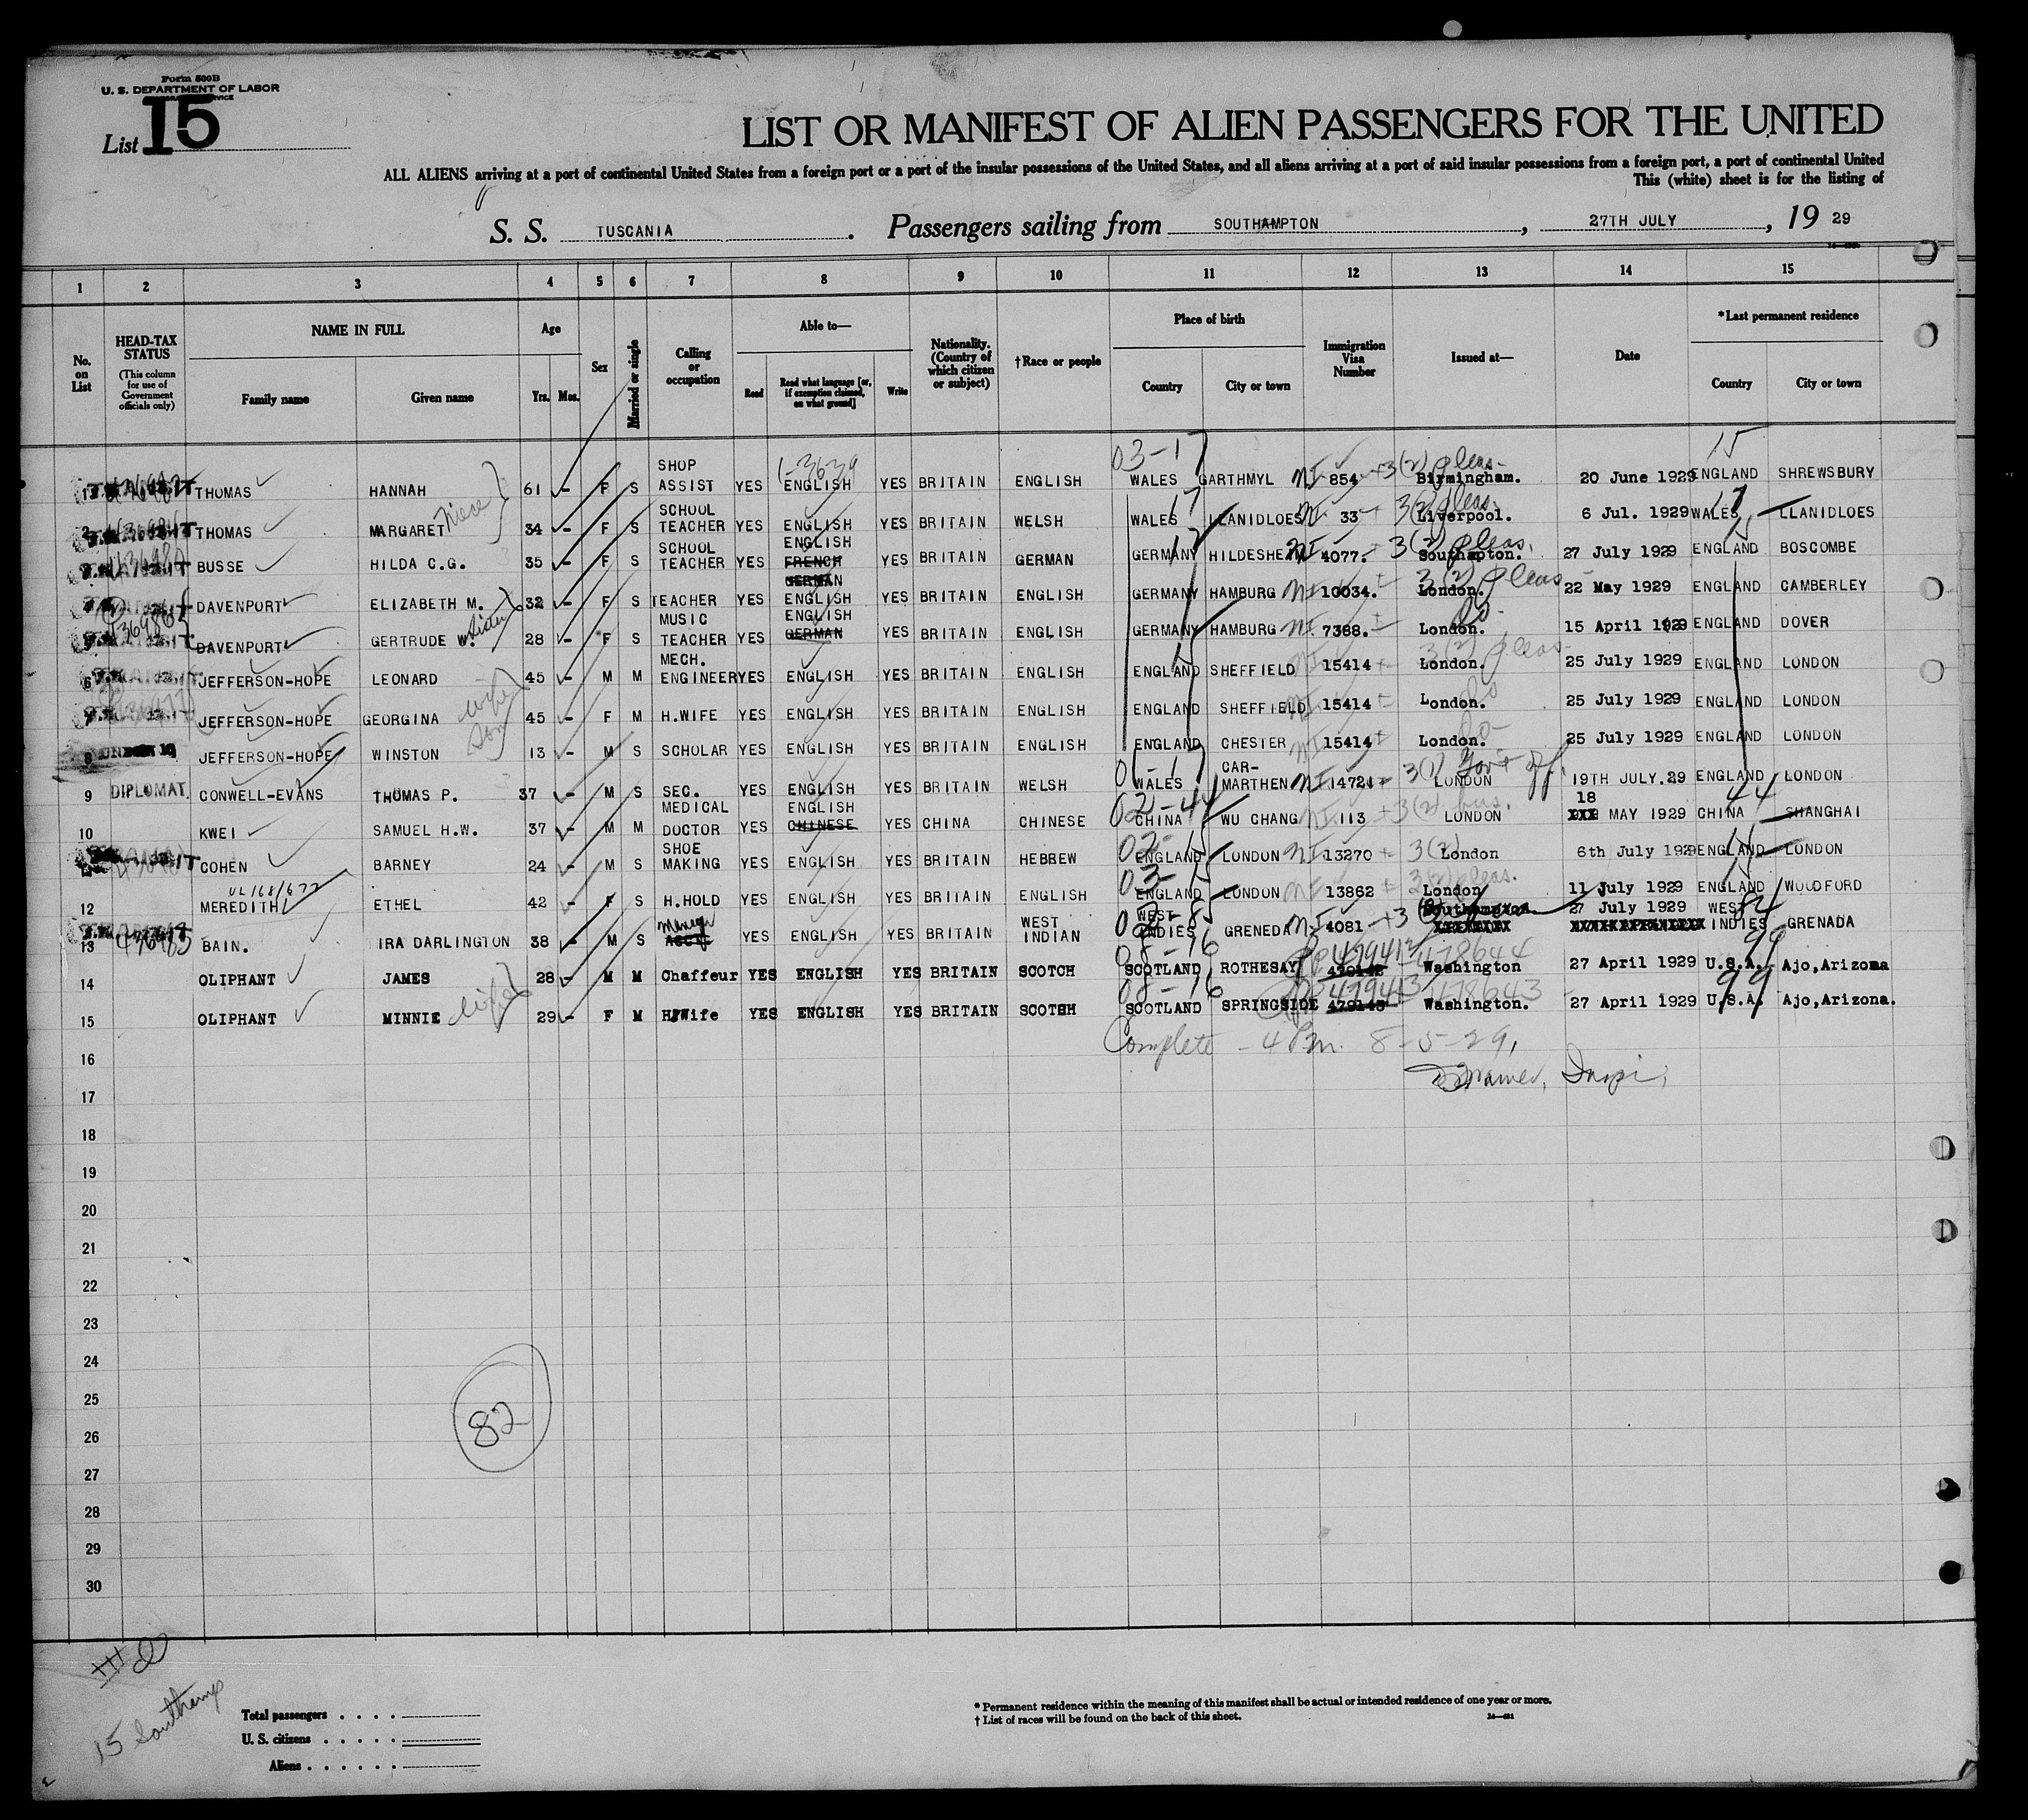 Form 500B
U. S. DEPARTMENT OF LABOR
List 15
LIST OR MANIFEST OF ALIEN PASSENGERS FOR THE UNITED
ALL ALIENS arriving at a port of continental United States from a foreign port or a port of the insular possessions of the United States, and all aliens arriving at a port of said insular possessions from a foreign port, a port of continental United
This (white) sheet is for the listing of
S. S. TUSCANIA. Passengers sailing from SOUTHAMPTON, 27TH JULY, 19 29
1 2 3 4 5 6 7 8 9 10 11 12 13 14 15
No. on List
HEAD-TAX STATUS (This column for use of Government officials only)
NAME IN FULL
Family name Given name
Age
Yrs. Mos.
Sex
Married or single
Calling or occupation
Able to—
Read Read what language [or, if exemption claimed, on what ground] Write
Nationality. (Country of which citizen or subject)
†Race or people
Place of birth
Country City or town
Immigration Visa Number
Issued at—
Date
*Last permanent residence
Country City or town
03-17 15
1 THOMAS HANNAH 61 F S SHOP ASSIST YES 1-3639 ENGLISH YES BRITAIN ENGLISH WALES GARTHMYL 854 3(2) pleas. Birmingham. 20 June 1929 ENGLAND SHREWSBURY
2 THOMAS MARGARET Niece 34 F S SCHOOL TEACHER YES ENGLISH YES BRITAIN WELSH WALES 17 LLANIDLOES 33 3(2) pleas. Liverpool. 6 Jul. 1929 WALES 17 LLANIDLOES
BUSSE HILDA C.G. 35 F S SCHOOL TEACHER YES ENGLISH FRENCH GERMAN YES BRITAIN GERMAN GERMANY HILDESHEIM 4077. 3(2) pleas. Southampton. 27 July 1929 ENGLAND 15 BOSCOMBE
DAVENPORT ELIZABETH M. 32 F S TEACHER YES ENGLISH YES BRITAIN ENGLISH GERMANY HAMBURG 10034. 3(2) pleas London. 22 May 1929 ENGLAND CAMBERLEY
DAVENPORT GERTRUDE W. Sister 28 F S MUSIC TEACHER YES ENGLISH GERMAN YES BRITAIN ENGLISH GERMANY HAMBURG 7388. Do London. 15 April 1929 ENGLAND DOVER
6 JEFFERSON-HOPE LEONARD 45 M M MECH. ENGINEER YES ENGLISH YES BRITAIN ENGLISH ENGLAND 15 SHEFFIELD 15414 3(2) pleas London. 25 July 1929 ENGLAND LONDON
7 JEFFERSON-HOPE GEORGINA wife 45 F M H.WIFE YES ENGLISH YES BRITAIN ENGLISH ENGLAND SHEFFIELD 15414 Do London. 25 July 1929 ENGLAND LONDON
8 UNDER 16 JEFFERSON-HOPE WINSTON Son 13 M S SCHOLAR YES ENGLISH YES BRITAIN ENGLISH ENGLAND CHESTER 15414 Do London. 25 July 1929 ENGLAND LONDON
9 DIPLOMAT. CONWELL-EVANS THOMAS P. 37 M S SEC. YES ENGLISH YES BRITAIN WELSH 01-17 WALES CAR-MARTHEN 14721 3(1) Gov't off. LONDON 19TH JULY.29 ENGLAND LONDON
10 KWEI SAMUEL H.W. 37 M M MEDICAL DOCTOR YES ENGLISH CHINESE YES CHINA CHINESE 02-44 CHINA WU CHANG 113 3(2) bus. LONDON 18 MAY 1929 CHINA 44 SHANGHAI
COHEN BARNEY 24 M S SHOE MAKING YES ENGLISH YES BRITAIN HEBREW 02-15 ENGLAND LONDON 13270 3(2) London 6th July 1929 ENGLAND 15 LONDON
12 MEREDITH ETHEL 42 F S H.HOLD YES ENGLISH YES BRITAIN ENGLISH 03-15 ENGLAND LONDON 13862 3(2) pleas. London 11 July 1929 ENGLAND 15 WOODFORD
13 436983 BAIN. IRA DARLINGTON 38 M S YES ENGLISH YES BRITAIN WEST INDIAN WEST INDIES GRENEDA 4081 Southampton 27 July 1929 WEST INDIES GRENADA
14 OLIPHANT JAMES 28 M M Chaffeur YES ENGLISH YES BRITAIN SCOTCH 08-16 SCOTLAND ROTHESAY 479142 479412 478644 Washington 27 April 1929 U.S.A. 99 Ajo,Arizona
15 OLIPHANT MINNIE wife 29 F M H.Wife YES ENGLISH YES BRITAIN SCOTCH 08-16 SCOTLAND SPRINGSIDE 479143 479413 478643 Washington. 27 April 1929 U.S.A. 99 Ajo,Arizona.
16 Complete - 4 Pm. 8-5-29,
17
18
19
20
21
22
23
24
25
26
27
28
29
30
82
15 Southamp
Total passengers
U. S. citizens
Aliens
* Permanent residence within the meaning of this manifest shall be actual or intended residence of one year or more.
† List of races will be found on the back of this sheet.